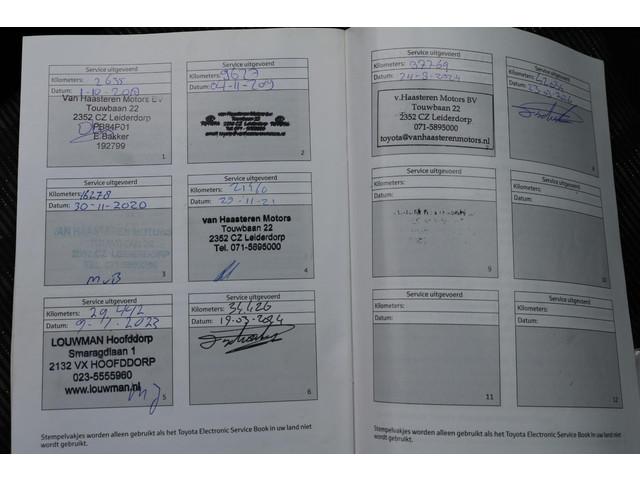 Service uitgevoerd
Kilometers: 2635
Datum: 1-10-2019
Van Haasteren Motors BV
Touwbaan 22
2352 CZ Leiderdorp
E.Bakker
192799
1
Service uitgevoerd
Kilometers: 9627
Datum: 04-11-209
2
Service uitgevoerd
Kilometers: 16278
Datum: 30-11-2020
VAN HAASTEREN MOTORS
TOUWBAAN 22
2352 CZ LEIDERDORP
MvB
3
Service uitgevoerd
Kilometers:
Datum: 29-11-21
van Haasteren Motors
Touwbaan 22
2352 CZ Leiderdorp
Tel. 071-5895000
4
Service uitgevoerd
Kilometers: 29.442
Datum:
LOUWMAN Hoofddorp
Smaragdlaan 1
2132 VX HOOFDDORP
023-5555960
www.louwman.nl
5
Service uitgevoerd
Kilometers: 34426
Datum: 19-03-2024
6
Stempelvakjes worden alleen gebruikt als het Toyota Electronic Service Book in uw land niet
wordt gebruikt.
Service uitgevoerd
Kilometers: 37769
Datum: 24-9-2024
v.Haasteren Motors BV
Touwbaan 22
2352 CZ Leiderdorp
071-5895000
toyota@vanhaasterenmotors.nl
Service uitgevoerd
Kilometers:
Datum:
8
Service uitgevoerd
Kilometers:
Datum:
9
Service uitgevoerd
Kilometers:
Datum:
10
Service uitgevoerd
Kilometers:
Datum:
11
Service uitgevoerd
Kilometers:
Datum:
12
Stempelvakjes worden alleen gebruikt als het Toyota Electronic Service Book in uw land niet
wordt gebruikt.